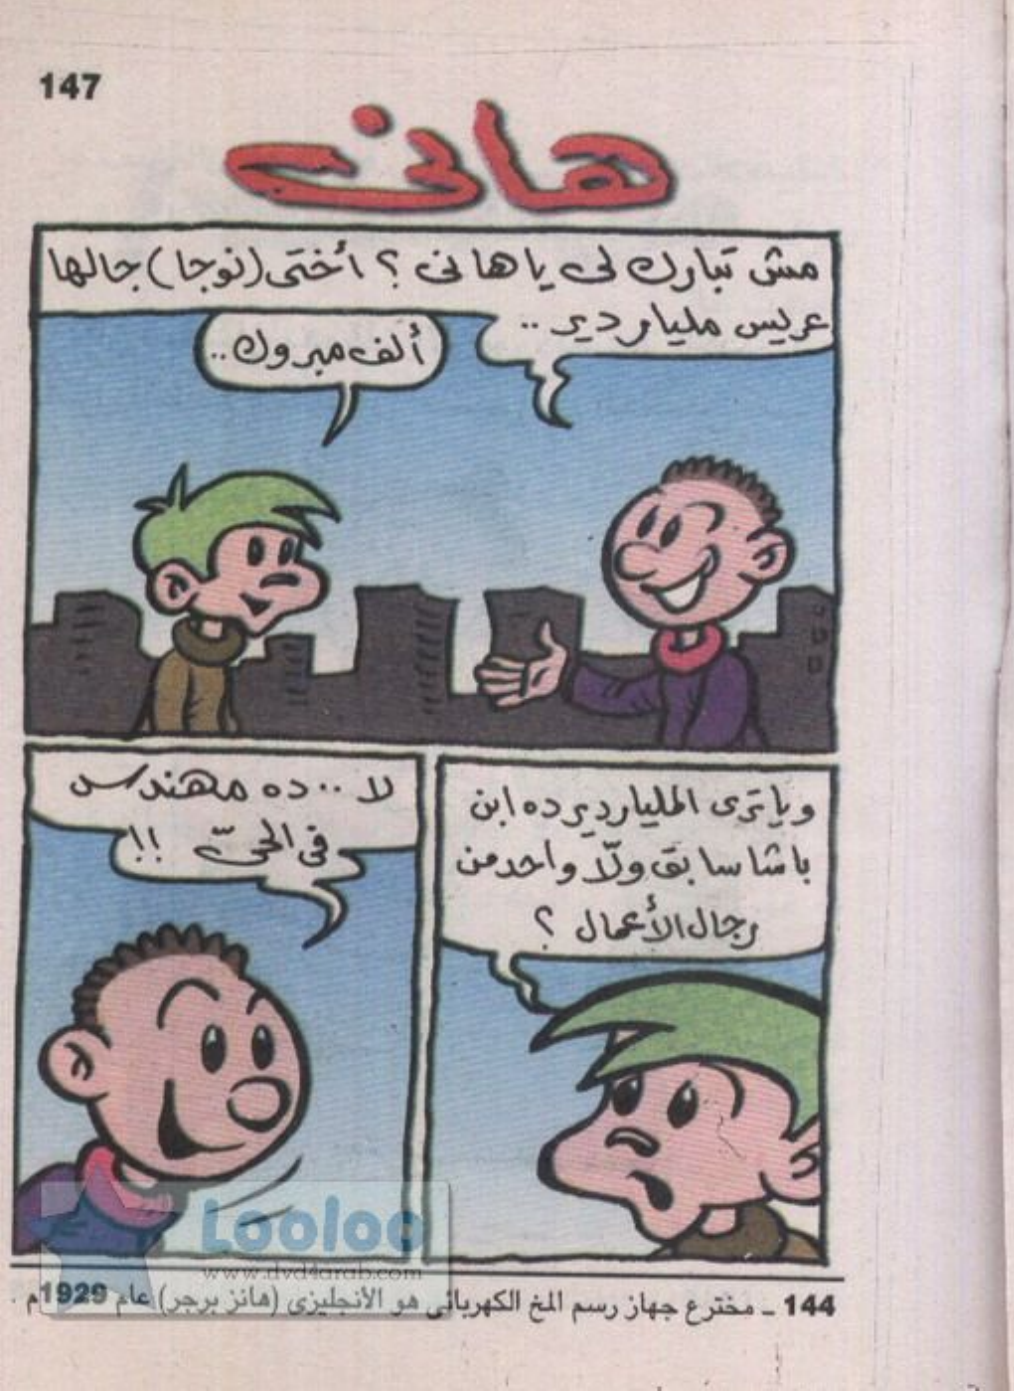 147
هانى
مش تبارك لى يا هانى ؟ أختى (نوجا) جالها
عريس مليار دير ..
ألف مبروك ..
ويا ترى المليارديرده ابن
باشا سابق ولّا واحد من
رجال الأعمال ؟
لا .. ده مهندس
فى الحىّ !!
Looloo
www.dvd4arab.com
144 ـ مخترع جهاز رسم المخ الكهربائى هو الأنجليزى (هانز برجر) عام 1929م .